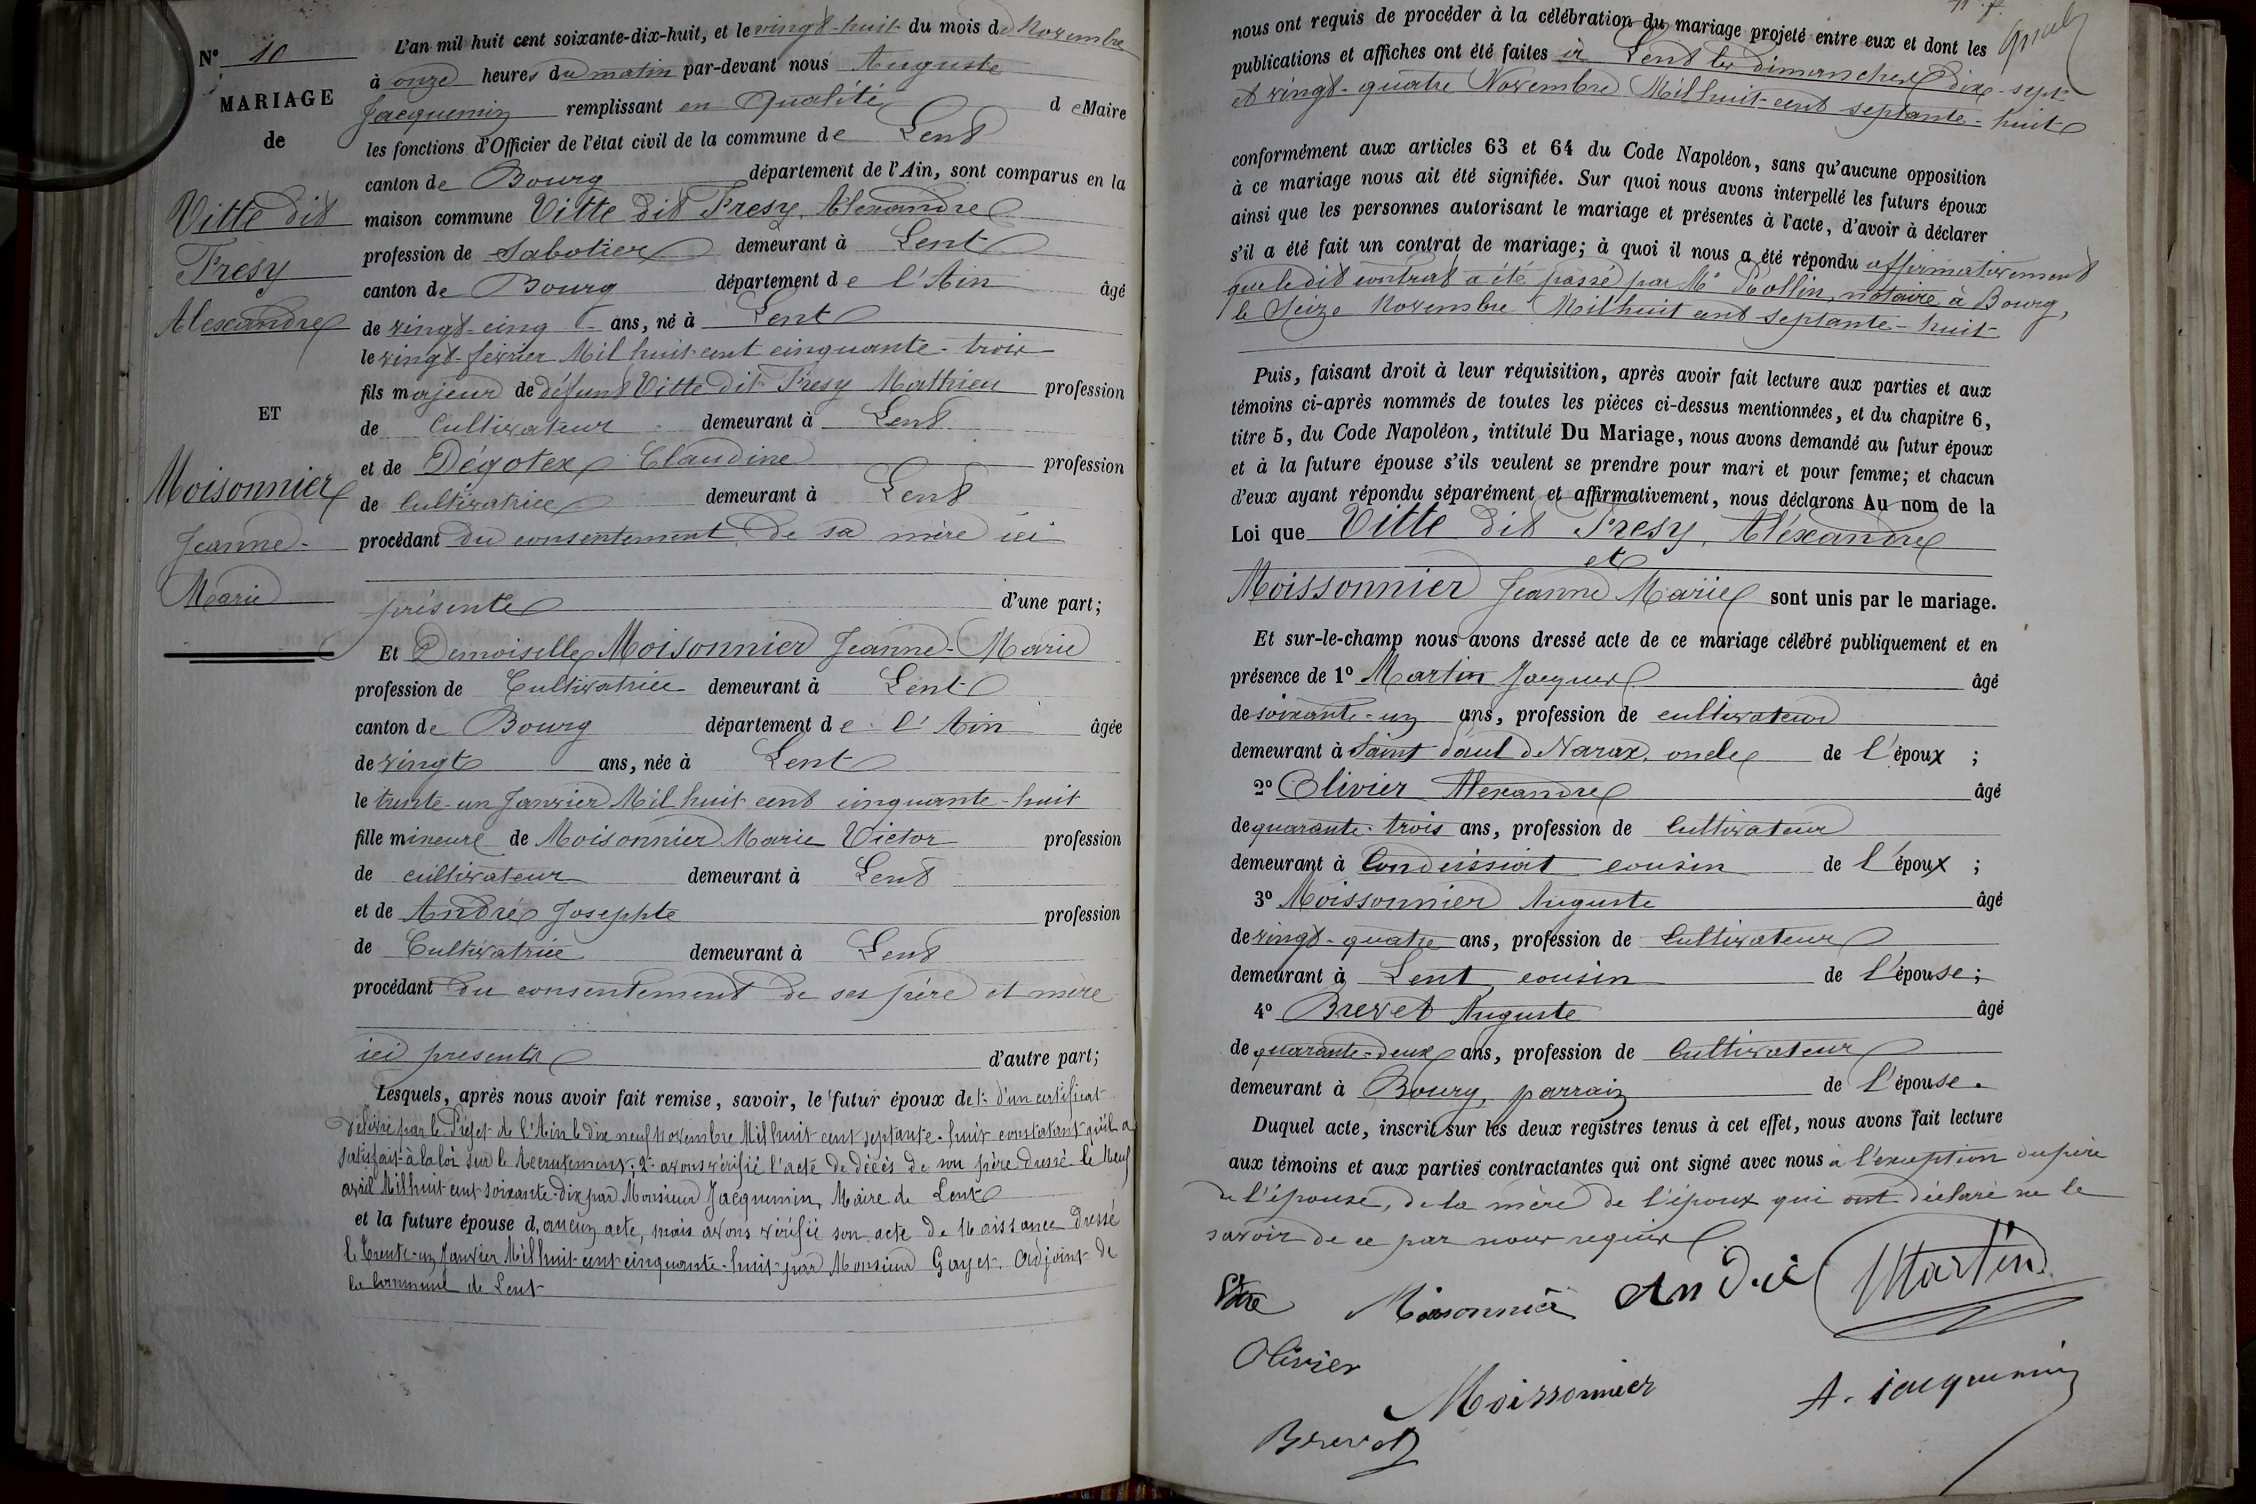 N° 10
MARIAGE
de
Vitte dit
Fresy
Alexandre
ET
Moisonnier
Jeanne-
Marie
L'an mil huit cent soixante-dix-huit, et le vingt-huit du mois de Novembre
à onze heures du matin par-devant nous Auguste
Jacquemin remplissant en qualité de Maire
les fonctions d'Officier de l'état civil de la commune de Lent
canton de Bourg département de l'Ain, sont comparus en la
maison commune Vitte dit Fresy, Alexandre
profession de Sabotier demeurant à Lent
canton de Bourg département de l'Ain âgé
de vingt-cinq ans, né à Lent
le vingt février Mil huit cent cinquante-trois
fils majeur de défunt Vitte dit Fresy Mathieu profession
de Cultivateur demeurant à Lent
et de Dégotex Claudine profession
de Cultivatrice demeurant à Lent
procédant du consentement de sa mère ici
présente d'une part;
Et Demoiselle Moisonnier Jeanne-Marie
profession de Cultivatrice demeurant à Lent
canton de Bourg département de l'Ain âgée
de vingt ans, née à Lent
le trente-un Janvier Mil huit cent cinquante-huit
fille mineure de Moisonnier Marie Victor profession
de cultivateur demeurant à Lent
et de André Josephte profession
de Cultivatrice demeurant à Lent
procédant du consentement de ses père et mère
ici présents d'autre part;
Lesquels, après nous avoir fait remise, savoir, le futur époux de 1° d'un certificat
délivré par le Préfet de l'Ain le dix neuf Novembre Mil huit cent septante-huit constatant qu'il a
satisfait à la loi sur le Recrutement; 2° avons vérifié l'acte de décès de son père dressé le Neuf
avril Mil huit cent soixante-dix par Monsieur Jacquemin, Maire de Lent
et la future épouse d'aucun acte, mais avons vérifié son acte de Naissance dressé
le Trente-un Janvier Mil huit cent cinquante-huit par Monsieur Gayet, Adjoint de
la Commune de Lent
nous ont requis de procéder à la célébration du mariage projeté entre eux et dont les
publications et affiches ont été faites à Lent les dimanches dix-sept
et vingt-quatre Novembre Mil huit-cent septante-huit
conformément aux articles 63 et 64 du Code Napoléon, sans qu'aucune opposition
à ce mariage nous ait été signifiée. Sur quoi nous avons interpellé les futurs époux
ainsi que les personnes autorisant le mariage et présentes à l'acte, d'avoir à déclarer
s'il a été fait un contrat de mariage; à quoi il nous a été répondu affirmativement
que ledit contrat a été passé par Me Rollin, notaire à Bourg,
le Seize Novembre Mil huit cent septante-huit
Puis, faisant droit à leur réquisition, après avoir fait lecture aux parties et aux
témoins ci-après nommés de toutes les pièces ci-dessus mentionnées, et du chapitre 6,
titre 5, du Code Napoléon, intitulé Du Mariage, nous avons demandé au futur époux
et à la future épouse s'ils veulent se prendre pour mari et pour femme; et chacun
d'eux ayant répondu séparément et affirmativement, nous déclarons Au nom de la
Loi que Vitte dit Fresy, Aléxandre
et
Moissonnier Jeanne Marie sont unis par le mariage.
Et sur-le-champ nous avons dressé acte de ce mariage célébré publiquement et en
présence de 1° Martin Jacques âgé
de soixante-un ans, profession de cultivateur
demeurant à Saint Paul de Varax, oncle de l'époux ;
2° Olivier Alexandre âgé
de quarante-trois ans, profession de Cultivateur
demeurant à Condeissiat cousin de l'époux ;
3° Moissonnier Auguste âgé
de vingt-quatre ans, profession de Cultivateur
demeurant à Lent, cousin de l'épouse;
4° Brevet Auguste âgé
de quarante-deux ans, profession de Cultivateur
demeurant à Bourg, parrain de l'épouse.
Duquel acte, inscrit sur les deux registres tenus à cet effet, nous avons fait lecture
aux témoins et aux parties contractantes qui ont signé avec nous à l'exception du père
de l'épouse, de la mère de l'époux qui ont déclaré ne le
savoir de ce par nous requis
Vitte Moisonnier André Martin
Olivier
Moissonnier A. Jacquemin
Brevet